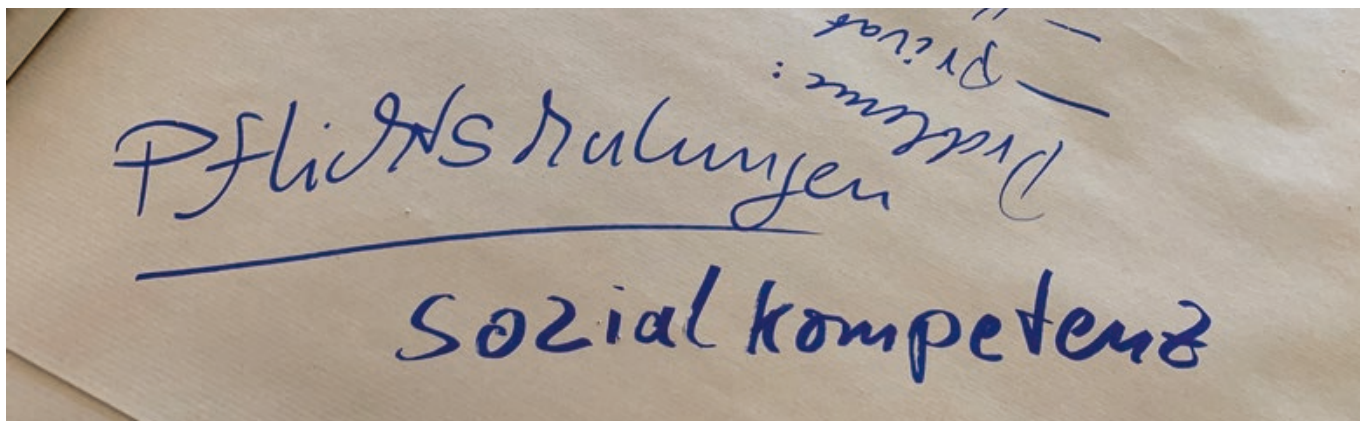 Pflichtschulungen
Sozialkompetenz
Probleme:
– Privat